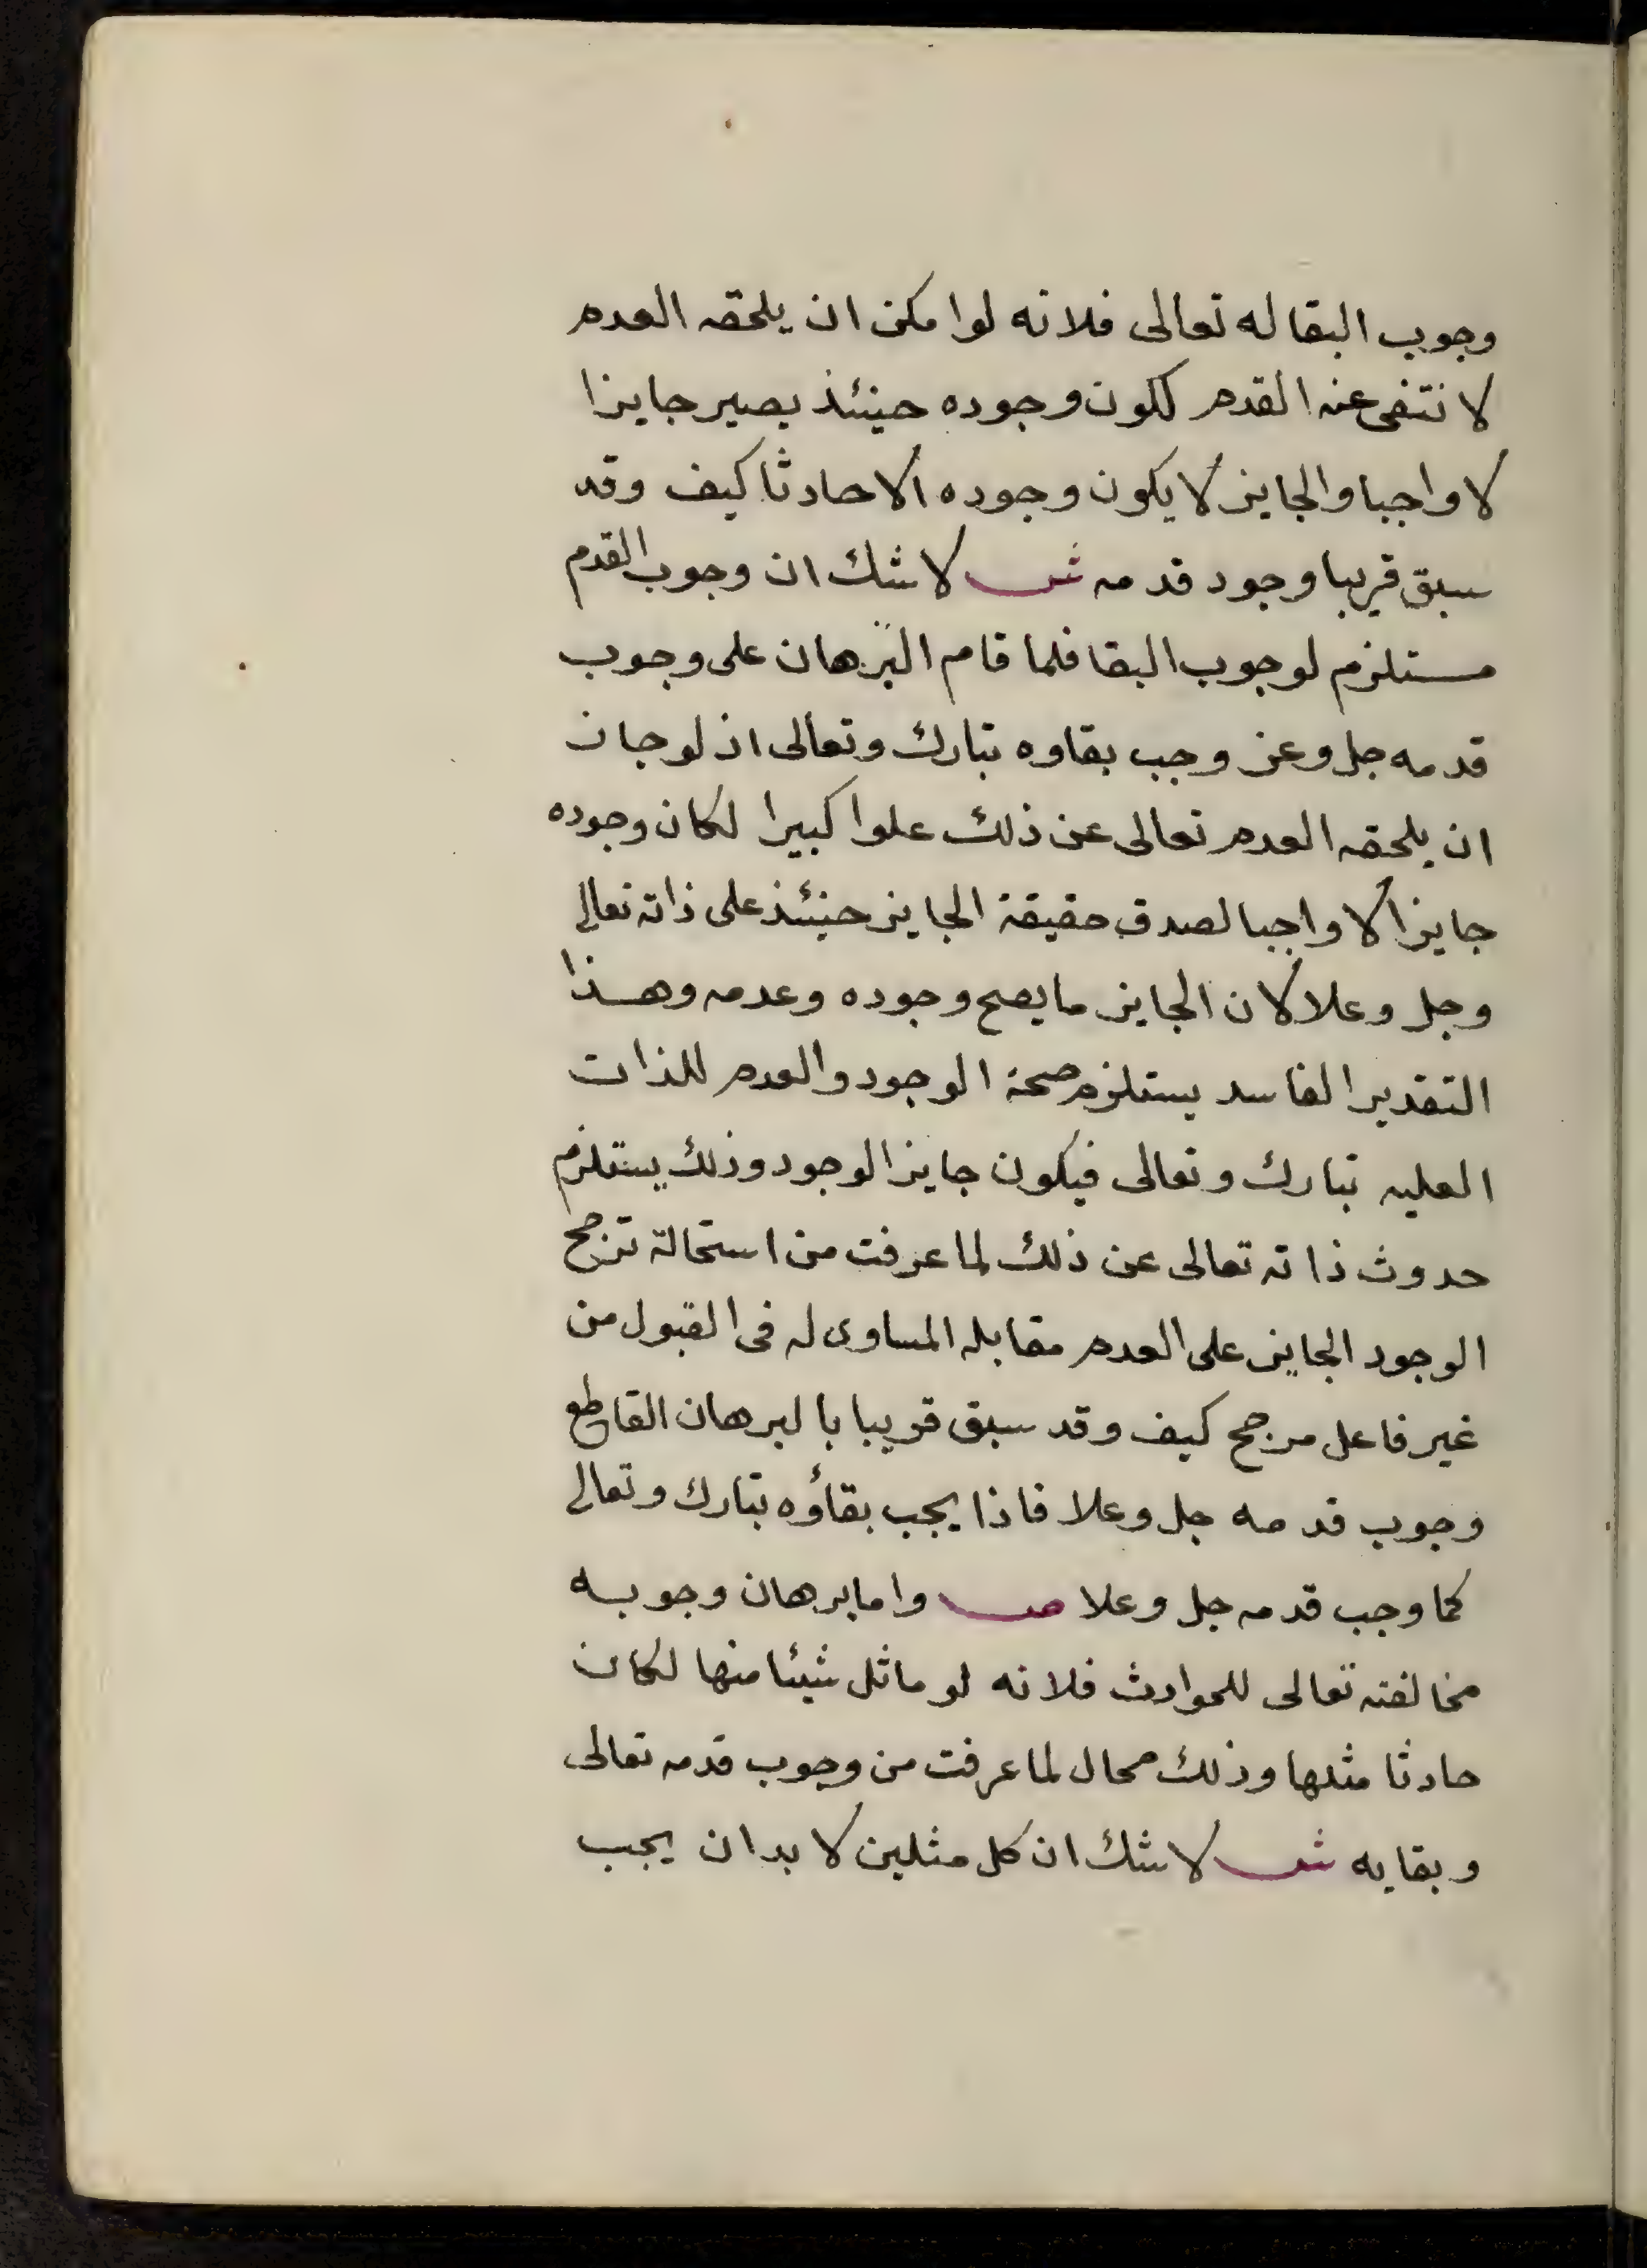 وجوب البقا له تعالى فلانه لو امكن ان يلحقه العدم
لانتفى عنه القدم لكون وجوده حينئذ يصير جايزا
لا واجبا والجايز لا يكون وجوده الا حادثا كيف وقد
سبق قريبا وجود قدمه ش لا شك ان وجوب القدم
مستلزم لوجوب البقا فلما قام البرهان على وجوب
قدمه جل وعز وجب بقاوه تبارك وتعالى اذ لو جاز
ان يلحقه العدم تعالى عن ذلك علوا كبيرا لكان وجوده
جايزا لا واجبا لصدق حقيقة الجايز حينئذ على ذاته تعالى
وجل وعلا لان الجايز ما يصح وجوده وعدمه وهذا
التقدير الفاسد يستلزم صحة الوجود والعدم للذات
العليه تبارك وتعالى فيكون جايز الوجود وذلك يستلزم
حدوث ذاته تعالى عن ذلك لما عرفت من استحالة ترجح
الوجود الجايز على العدم مقابله المساوى له فى القبول من
غير فاعل مرجح كيف وقد سبق قريبا بالبرهان القاطع
وجوب قدمه جل وعلا فاذا يجب بقاؤه تبارك وتعالى
كما وجب قدمه جل وعلا ص واما برهان وجوبه
مخالفته تعالى للحوادث فلانه لو ماثل شيئا منها لكان
حادثا مثلها وذلك محال لما عرفت من وجوب قدمه تعالى
وبقايه ش لا شك ان كل مثلين لا بد ان يجب